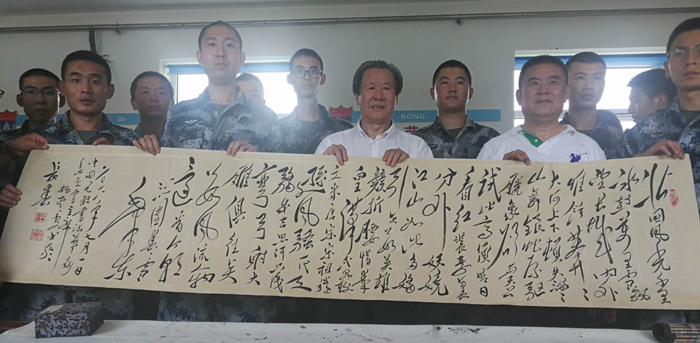 北国风光千里
冰封万里雪飘
望长城内外
惟余莽莽
大河上下顿失滔滔
山舞银蛇原驰
腊象欲与天公
试比高须晴日
看红装素裹
分外妖娆
江山如此多娇
引无数英雄
竞折腰惜秦
皇汉武略输
文采唐宗宋祖稍
逊风骚一代天
骄成吉思汗
弯弓射大
雕俱往矣
数风流人物
还看今朝
沁园春雪
毛泽东
二〇一八年九月一日
DI
RONG